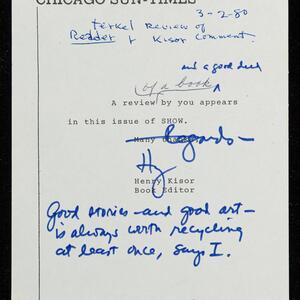 CHICAGO SUN-TIMES
3-2-80
Terkel review of
Redder & Kisor Comment.
and a good deed
of a book ^
A review by you appears
in this issue of SHOW.
Many
Regards—
H
Henry Kisor
Book Editor
Good stories—and good art—
is always worth recycling
at least once, says I.